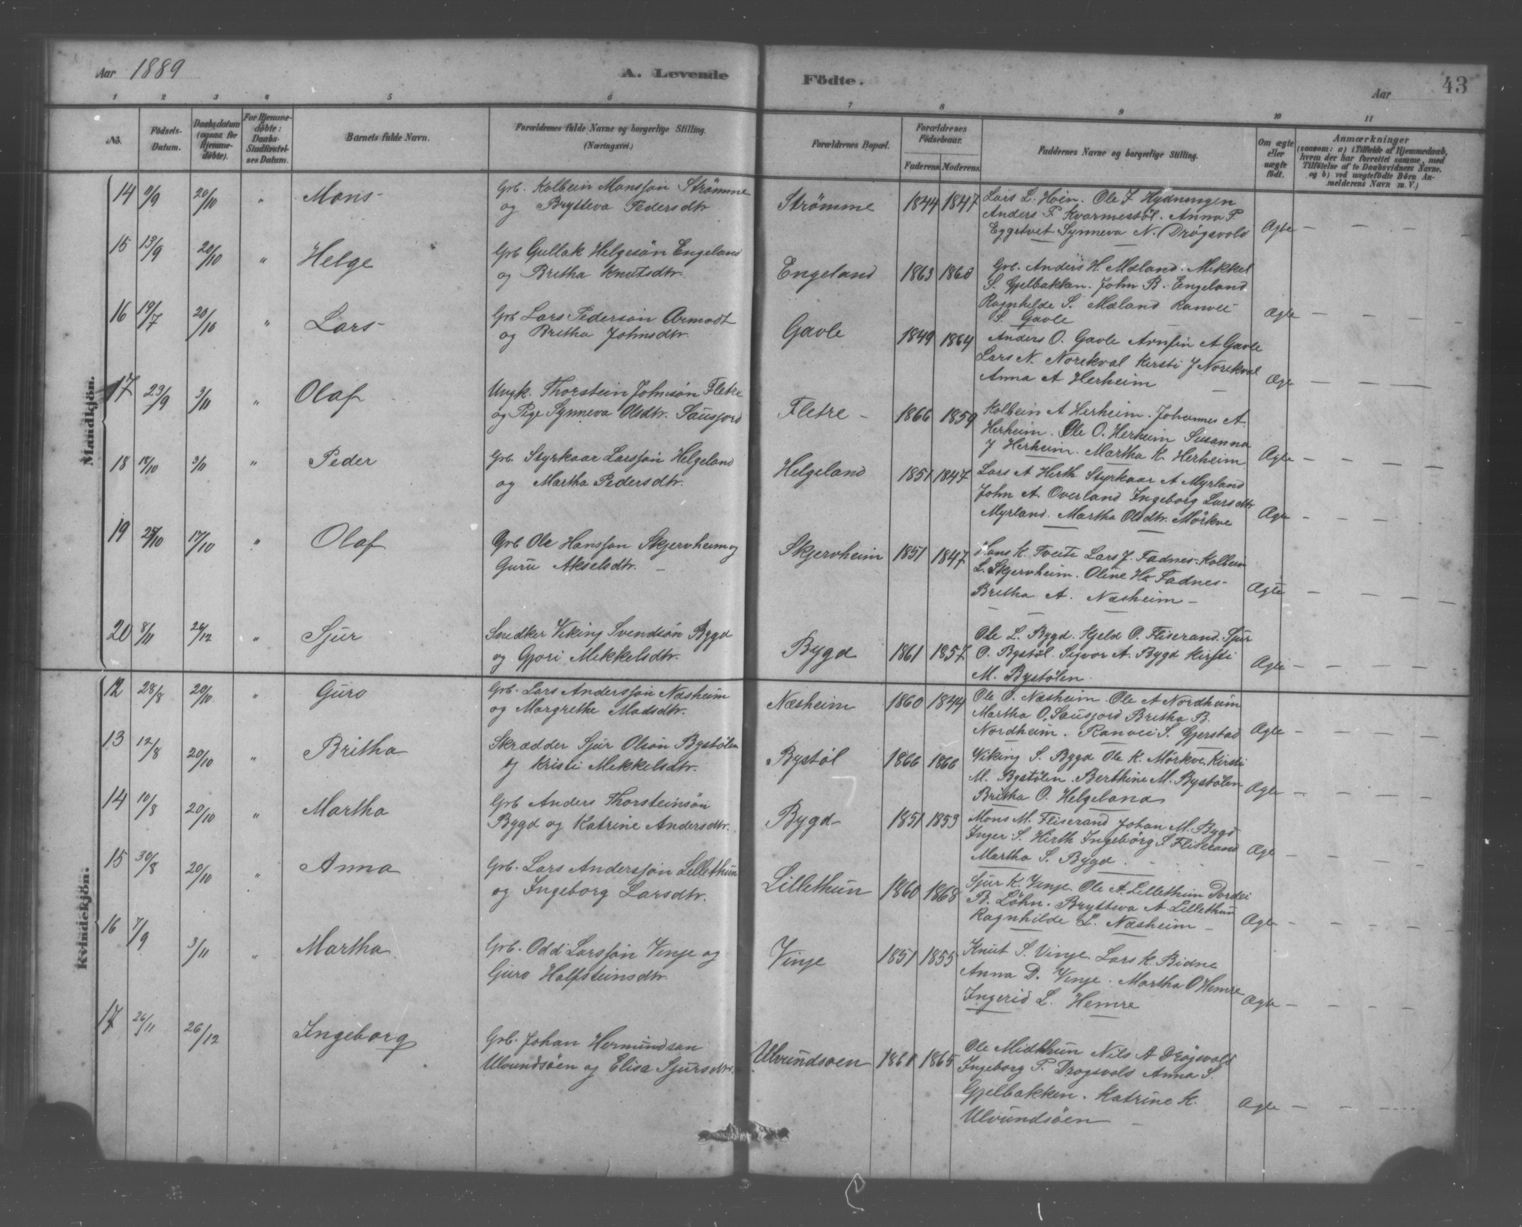 Aar 1889 A. Levende Födte. Aar 43
1 2 3 4 5 6 7 8 9 10 11
No. Födsels-Datum. Daabsdatum (ogsaa for Hjemmedøbte). For Hjemmedøbte: Daabs-Stadfæstelses Datum. Barnets fulde Navn. Forældrenes fulde Navne og borgerlige Stilling. (Næringsvei.) Forældrenes Bopæl. Forældrenes Födselsaar. Faderens Moderens Faddernes Navne og borgerlige Stilling. Om ægte eller uægte født. Anmærkninger
Mandkjön.
14 9/9 20/10 Mons Grb. Kolbein Monsson Strömme
og Brytteva Pedersdtr. Strömme 1844 1847 Lars L. Hoien. Ole J Hydnungen
Anders F. Kvarmestöl. Anna P
Eggetveit Synneva N. Drögsvold Ægte
15 13/9 20/10 " Helge Grb Gullak Helgesön Engeland
og Britha Knutsdtr. Engeland 1863 1860 Grb. Anders H. Mæland. Mikkel
S. Gjelbakken. John B. Engeland
Ragnhilde S. Mæland Ranvei
S. Gavle Ægte
16 19/7 20/10 " Lars Grb Lars Pederson Armodt
og Britha Johnsdtr. Gavle 1849 1864 Anders O. Gavle Arnfin A Gavle
Lars N. Norekval Kersti J Norekval
Anna A Herheim Ægte
17 23/9 3/11 " Olaf Ungk. Thorstein Johnsön Fletre
og Pige Synneva Olsdtr. Sausjord Fletre 1866 1859 Kolbein A Herheim. Johannes A.
Herheim. Ole O. Herheim Susanna
J Herheim. Martha K. Herheim Ægte
18 18/10 3/11 " Peder Grb. Styrkaar Larsson Helgeland
og Martha Pedersdtr. Helgeland 1851 1847 Lars A Herth Styrkaar A Myrland
John A. Overland Ingeborg Larsdtr
Myrland. Martha Olsdtr. Mörkve Ægte
19 17/10 " Olaf Grb Ole Hansson Skjerveheim og
Guru Akselsdtr. Skjervheim 1851 1847 Hans K. Tveite Lars J. Fadnes. Kolbein
L. Skjervheim. Oline H. Fadnes
Britha A. Næsheim Ægte
20 8/11 26/12 " Sjur Snedker Viking Svendsön Bygd
og Gjori Mikkelsdtr. Bygd 1861 1857 Ole L. Bygd. Hjeld O. Fliserand. Sjur
O. Bystöl. Sigvor A. Bygd Kirsti
M. Bystölen. Ægte
Kvindekjön.
12 28/8 20/10 " Guro Grb. Lars Andersson Næsheim
og Margrethe Madsdtr. Næsheim 1860 1844 Ole O. Næsheim Ole A Nordheim
Martha O. Sausjord Britha B.
Nordheim. Ranvei S. Gjerstad Ægte
13 12/8 20/10 " Britha Skrædder Sjur Olson Bystölen
og Kristi Mikkelsdtr. Bystöl 1866 1866 Viking S. Bygd Ole K. Mörkve Kirsti
M. Bystölen Berthine M. Bystölen
Britha O. Helgeland Ægte
14 10/8 20/10 " Martha Grb Anders Thorsteinsön
Bygd og Katrine Andersdtr. Bygd 1851 1853 Mons M. Fliserand Johan M. Bygd
Inger S. Herth Ingebörg S Fliserand
Martha S. Bygd Ægte
15 30/8 20/10 " Anna Grb. Lars Andersson Lillethun
og Ingeborg Larsdtr. Lillethun 1860 1868 Sjur K. Vinje Ole A Lillethun Dordei
B. Löhn. Brytteva A Lillethun
Ragnhilde L. Næsheim Ægte
16 7/9 3/11 " Martha Grb. Odd Larsson Vinje og
Guro Halfsteinsdtr. Vinje 1851 1855 Knut S. Vinje Lars K. Bidne
Anna D. Vinje. Martha O Hemre
Ingerid L. Hemre Ægte
17 26/11 26/12 Ingeborg Grb. Johan Hermundson
Ulvundsöen og Elisa Sjursdtr. Ulvundsoen 1861 1865 Ole Midthun Nils A Drögsvold
Ingeborg T. Drogsvold Anna S.
Gjelbakken. Katrine K.
Ulvundsöen Ægte